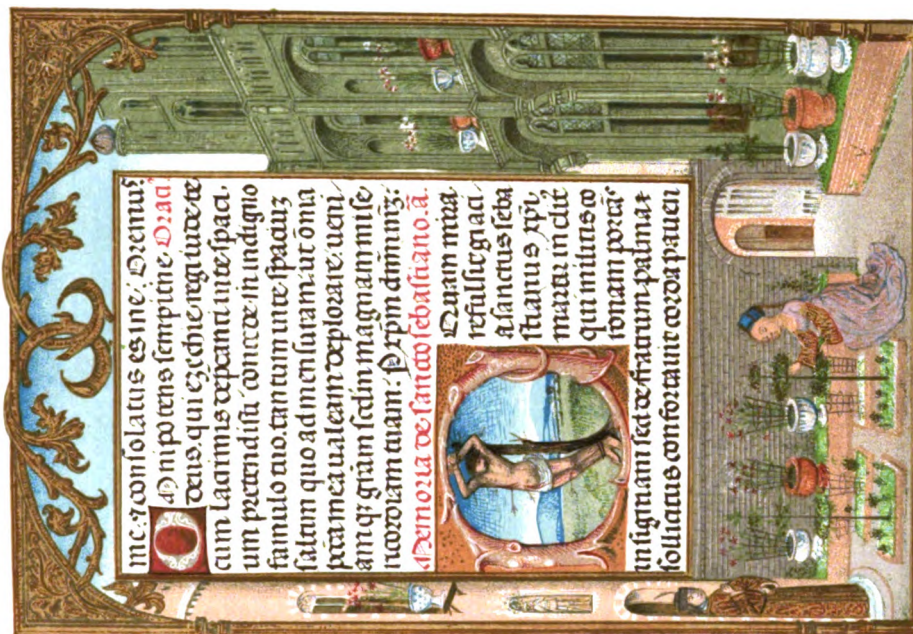 me: ⁊ consolatus es me. Oremus.
Omnipotens sempitne. Oraci
deus. qui ezechie regi iude te
cum lacrimis depcanti vite spaci.
um pretendisti. concede m indigno
famulo tuo. tantum vite spaciuz
saltem quo ad mensuram. vt oma
pcca mea valeam deplorare. veni
amq; gram scdm magnam mise
ricordiam tuam. Per xpm dnm nrm.
Memoria de sancto sebastiano. a.
O Quam mira
refulsit graci
a sanctus seba
stianus xpi
martir inclit
qui militis
portas
insignia. sed de fratrum palma
sollicitus confortauit corda pauen